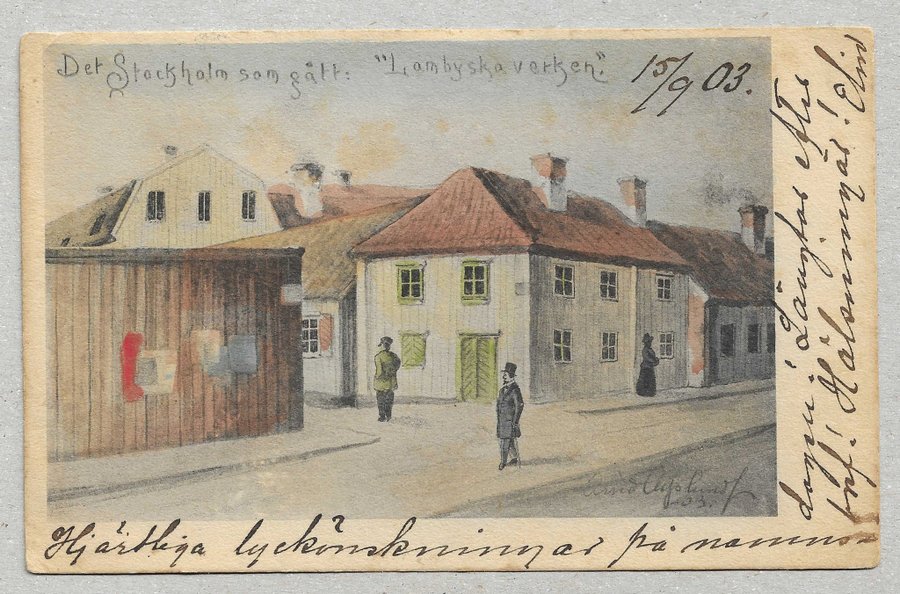 Det Stockholm som gått: "Lambyska verken".
15/9 03.
Hjärtliga lyckönskningar på namns-
dagen! Längtas efter
bref! Hälsningar! Elin
03.